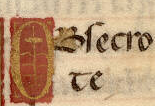 OBsecro
te